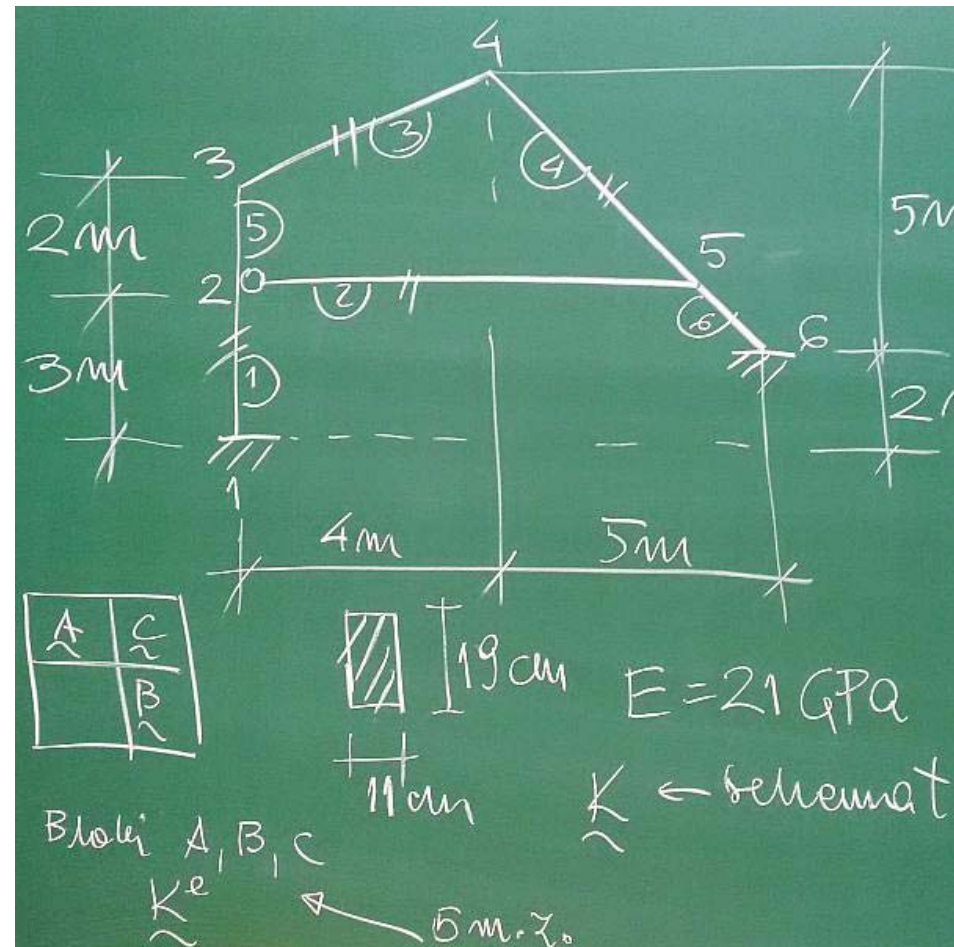 4
3
③
④
2m
⑤
5m
5
2
②
⑥
6
3m
①
2
1
4m
5m
A
C
B
19 cm
11 cm
E = 21 GPa
K ← schemat
Bloki A, B, C
K^e